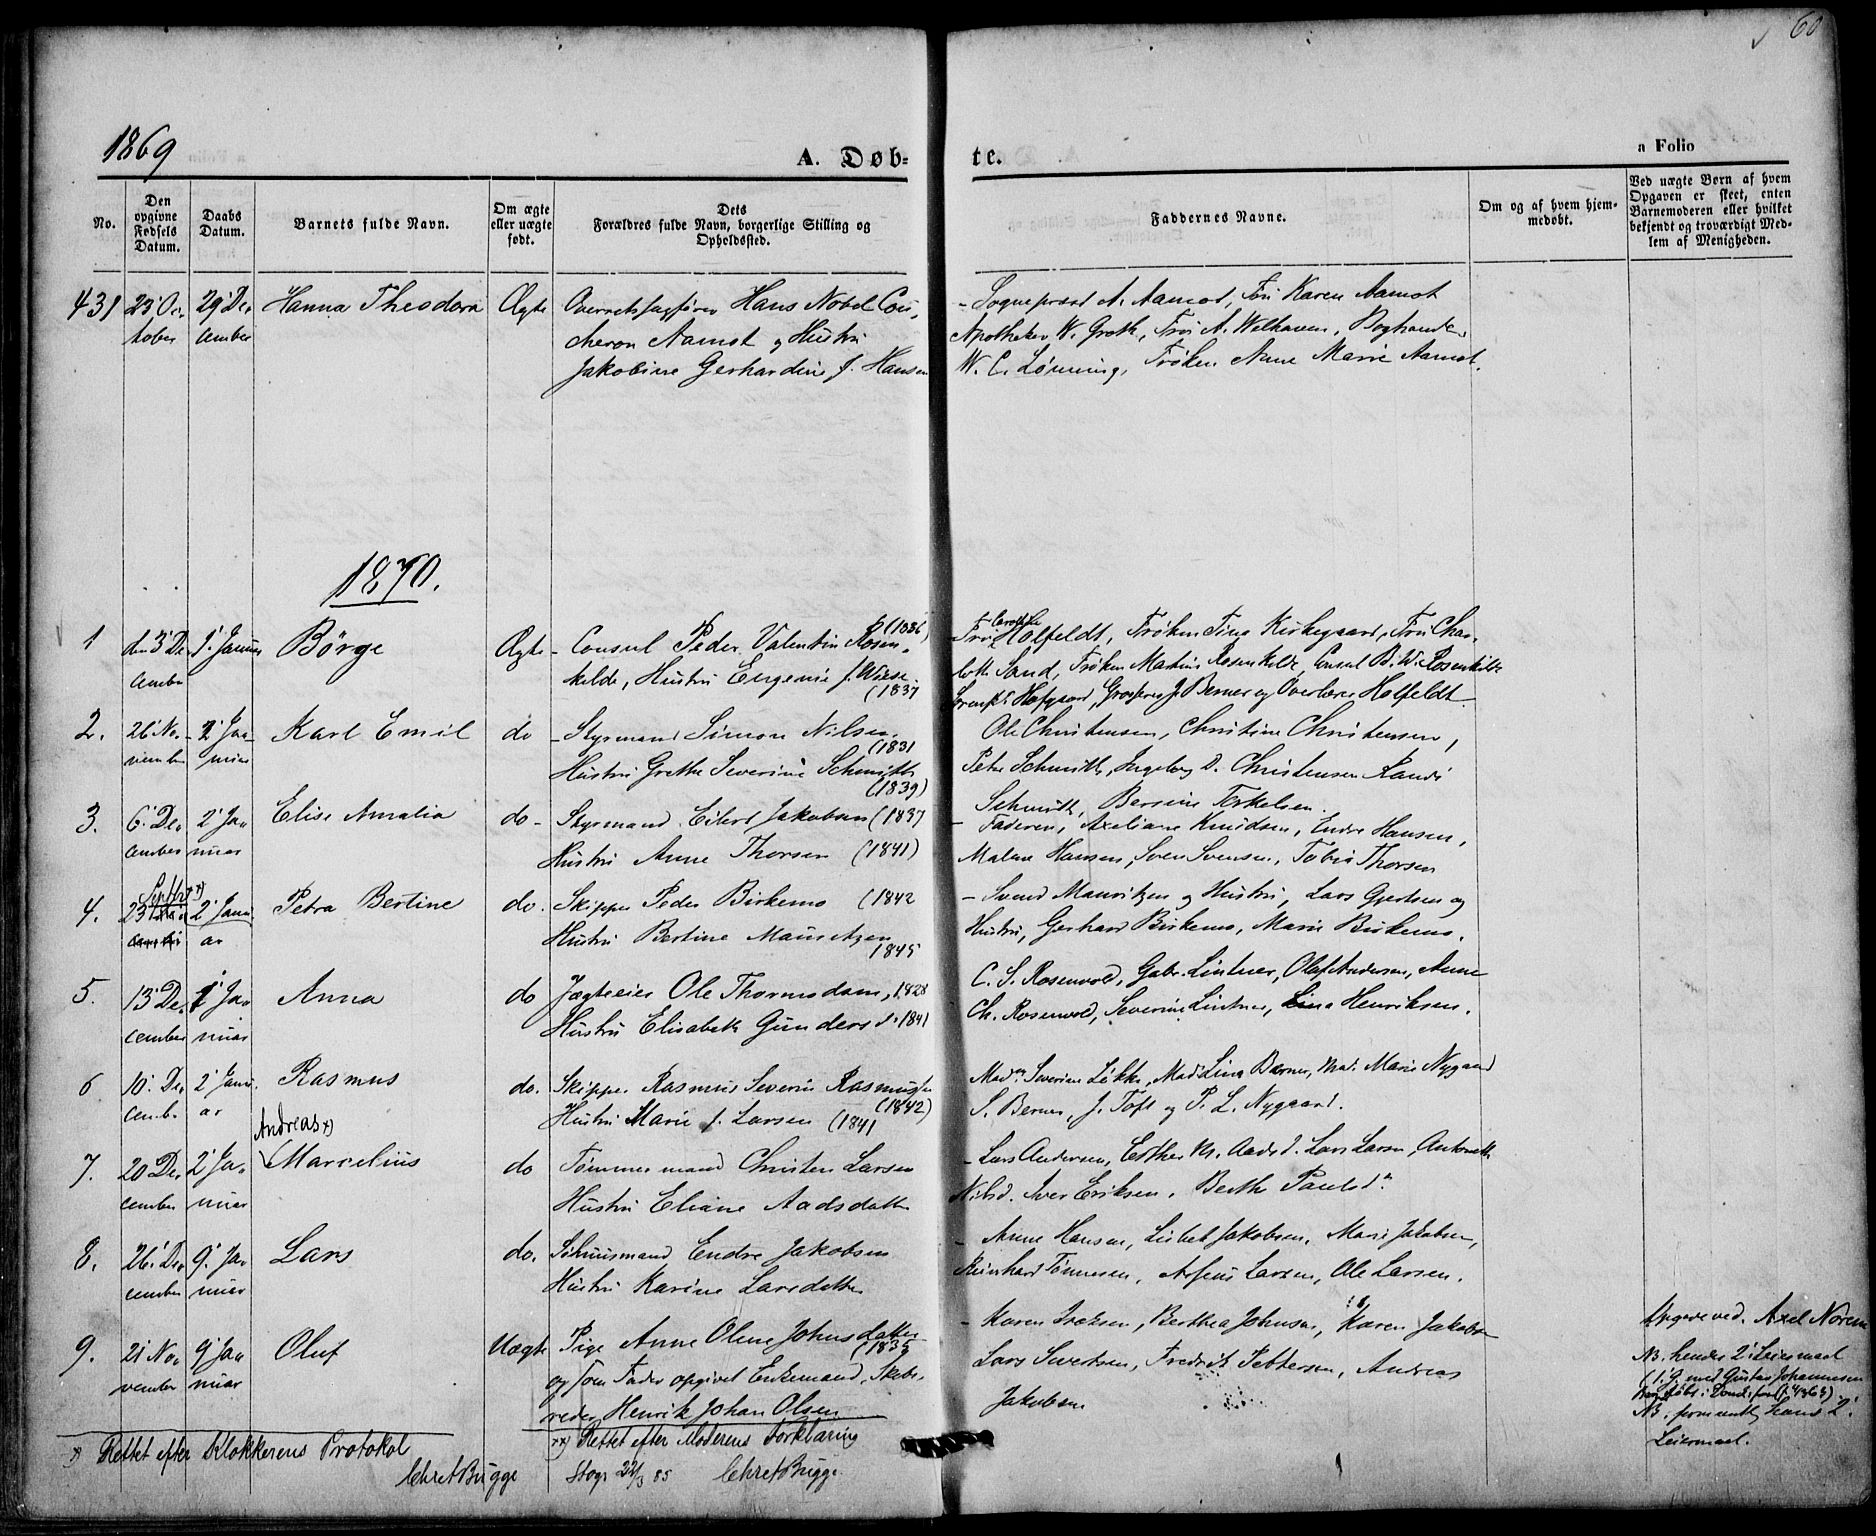 60
1869
A. Døb-
te.
a Folio
No.
Den
opgivne
Fødsels
Datum.
Daabs
Datum.
Barnets fulde Navn.
Om ægte
eller uægte
født.
Dets
Forældres fulde Navn, borgerlige Stilling og
Opholdssted.
Faddernes Navne.
Om og af hvem hjem-
medøbt.
Ved uægte Børn af hvem
Opgaven er skeet, enten
Barnemoderen eller hvilket
bekjendt og troværdigt Med-
lem af Menigheden.
431
23' Oc,
tober
29' De,
cember
Hanna Theodora
Ægte
Overretssagfører Hans Nobel Cou,
cheron Aamot og Hustru
Jakobine Gerhardine f. Hansen
- Sognepræst A. Aamot, Fru Karen Aamot
Apotheker W. Groth, Fru A. Welhaven, Boghandler
W. C. Lönning, Frøken Anne Marie Aamot.
1870.
1
den 3' De,
cember
1' Januar
Börge
Ægte
- Consul Peder Valentin Rosen, (1836)
kilde, Hustru Eugenie f. Wiese.
(1837
Fru Holfeldt, Frøken Tina Kirkegaard, Fru Char,
lotte Sand, Frøken Martine Rosenkilde, Consul B. W. Rosenkilde
Hofgaard, J. Berner og Overlærer Holfeldt
2.
26' No,
vember
2' Ja,
nuar
Karl Emil
do
- Styrmand Simon Nilsen
(1831
Hustru Grethe Severine Schmith
(1839)
Ole Christensen, Christine Christensen,
Peter Schmith, Ingeborg D. Christensen Randi
Schmidt, Bersine Torkelsen.
3.
6' De,
cember
2' Ja,
nuar
Elise Amalia
do -
Styrmand Eilert Jakobsen (1837
Hustru Anne Thorsen (1841)
- Faderen, Axeliane Knudsen, Endre Hansen,
Malene Hansen, Sven Svensen, Tobia Thorsen
4.
Septbr xx)
23'
cember
2' Janu,
ar
Petra Bertine
do.
Skipper Peder Birkemo (1842
Hustru Bertine Mauritzen
1845
- Svend Mauritzen og Hustru, Lars Gjertsen og
Hustru, Gerhard Birkemo, Marie Birkemo.
5.
13' De,
cember
1' Ja,
nuar
Anna
do
Jægteeier Ole Thormodsen, 1828
Hustru Elisabeth Gundersd. 1841
C. S. Rosenvold, Gabr. Lintner, Olaf Andersen, Anne
Ch. Rosenvold, Severine Lintner, Lina Henriksen.
6
10' De,
cemb.
2' Janu,
ar
Rasmus
do.
Skipper Rasmus Severin Rasmussen
(1842)
Hustru Marie f. Larsen (1841
Madm Severine Løkke, Mad. Lina Berner, Mad. Marie Nygaard
S. Berner, J. Toft og P. L. Nygaard.
7.
20 De,
cember
2' Ja,
nuar
Andreas x)
Marcelius
do
Tømmermand Christen Larsen
Hustru Eliane Aadsdatter
- Lars Andersen, Esther M. Aadsd. Lars Larsen, Antonette
Nilsd. Iver Eriksen, Berthe Paulsdr.
8.
26' De,
cember
9' Ja,
nuar
Lars
do.
Schuismand Endre Jakobsen
Hustru Karine Larsdatter
- Anne Hansen, Lisbet Jakobsen, Marie Jakobsen,
Reinhard Tönnesen, Larsen, Ole Larsen.
9.
21' No,
vember
9' Ja,
nuar
Oluf
Uægte
Pige Anne Oline Johnsdatter
(1835
og som Fader opgivet Enkemand, Skibs,
reder Henrik Johan Olsen
- Karen Isaksen, Berthea Johnsen, Karen Jakobsen
Lars Sivertsen, Fredrik Pettersen, Andreas
Jakobsen
Opgave ved. Axel Noreim
NB. hendes 2' Leiermaal
(1' G. med Gustav Johannesen
NB. hans 2'
Leiermaal.
x) Rettet efter Klokkerens Protokol
Chr et Bugge
xx) Rettet efter Moderens Forklaring
Stvgr 22/3 85 Chr et Bugge.